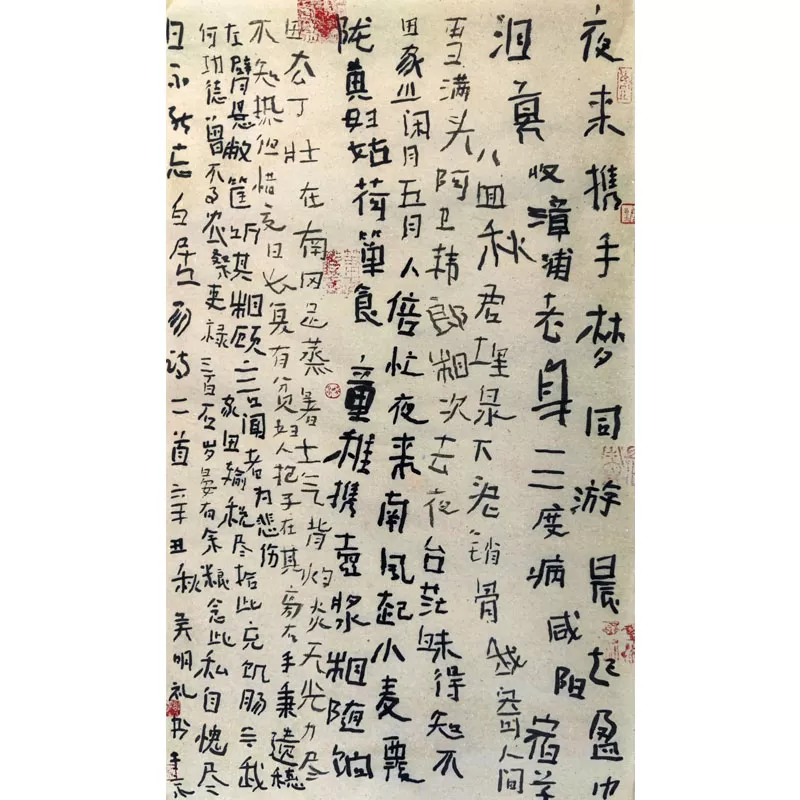 夜来携手梦同游晨起盈巾
泪莫收漳浦老身三度病咸阳宿草
八回秋君埋泉下泥销骨我寄人间
雪满头阿卫韩郎相次去夜台茫昧得知不
田家少闲月五月人倍忙夜来南风起小麦覆
陇黄妇姑荷箪食童稚携壶浆相随饷
田去丁壮在南冈足蒸暑土气背灼炎天光力尽
不知热但惜夏日长复有贫妇人抱子在其旁右手秉遗穗
左臂悬敝筐听其相顾言闻者为悲伤家田输税尽拾此充饥肠今我
何功德曾不事农桑吏禄三百石岁晏有余粮念此私自愧尽
日不能忘白居易诗二首辛丑秋吴明礼书于京